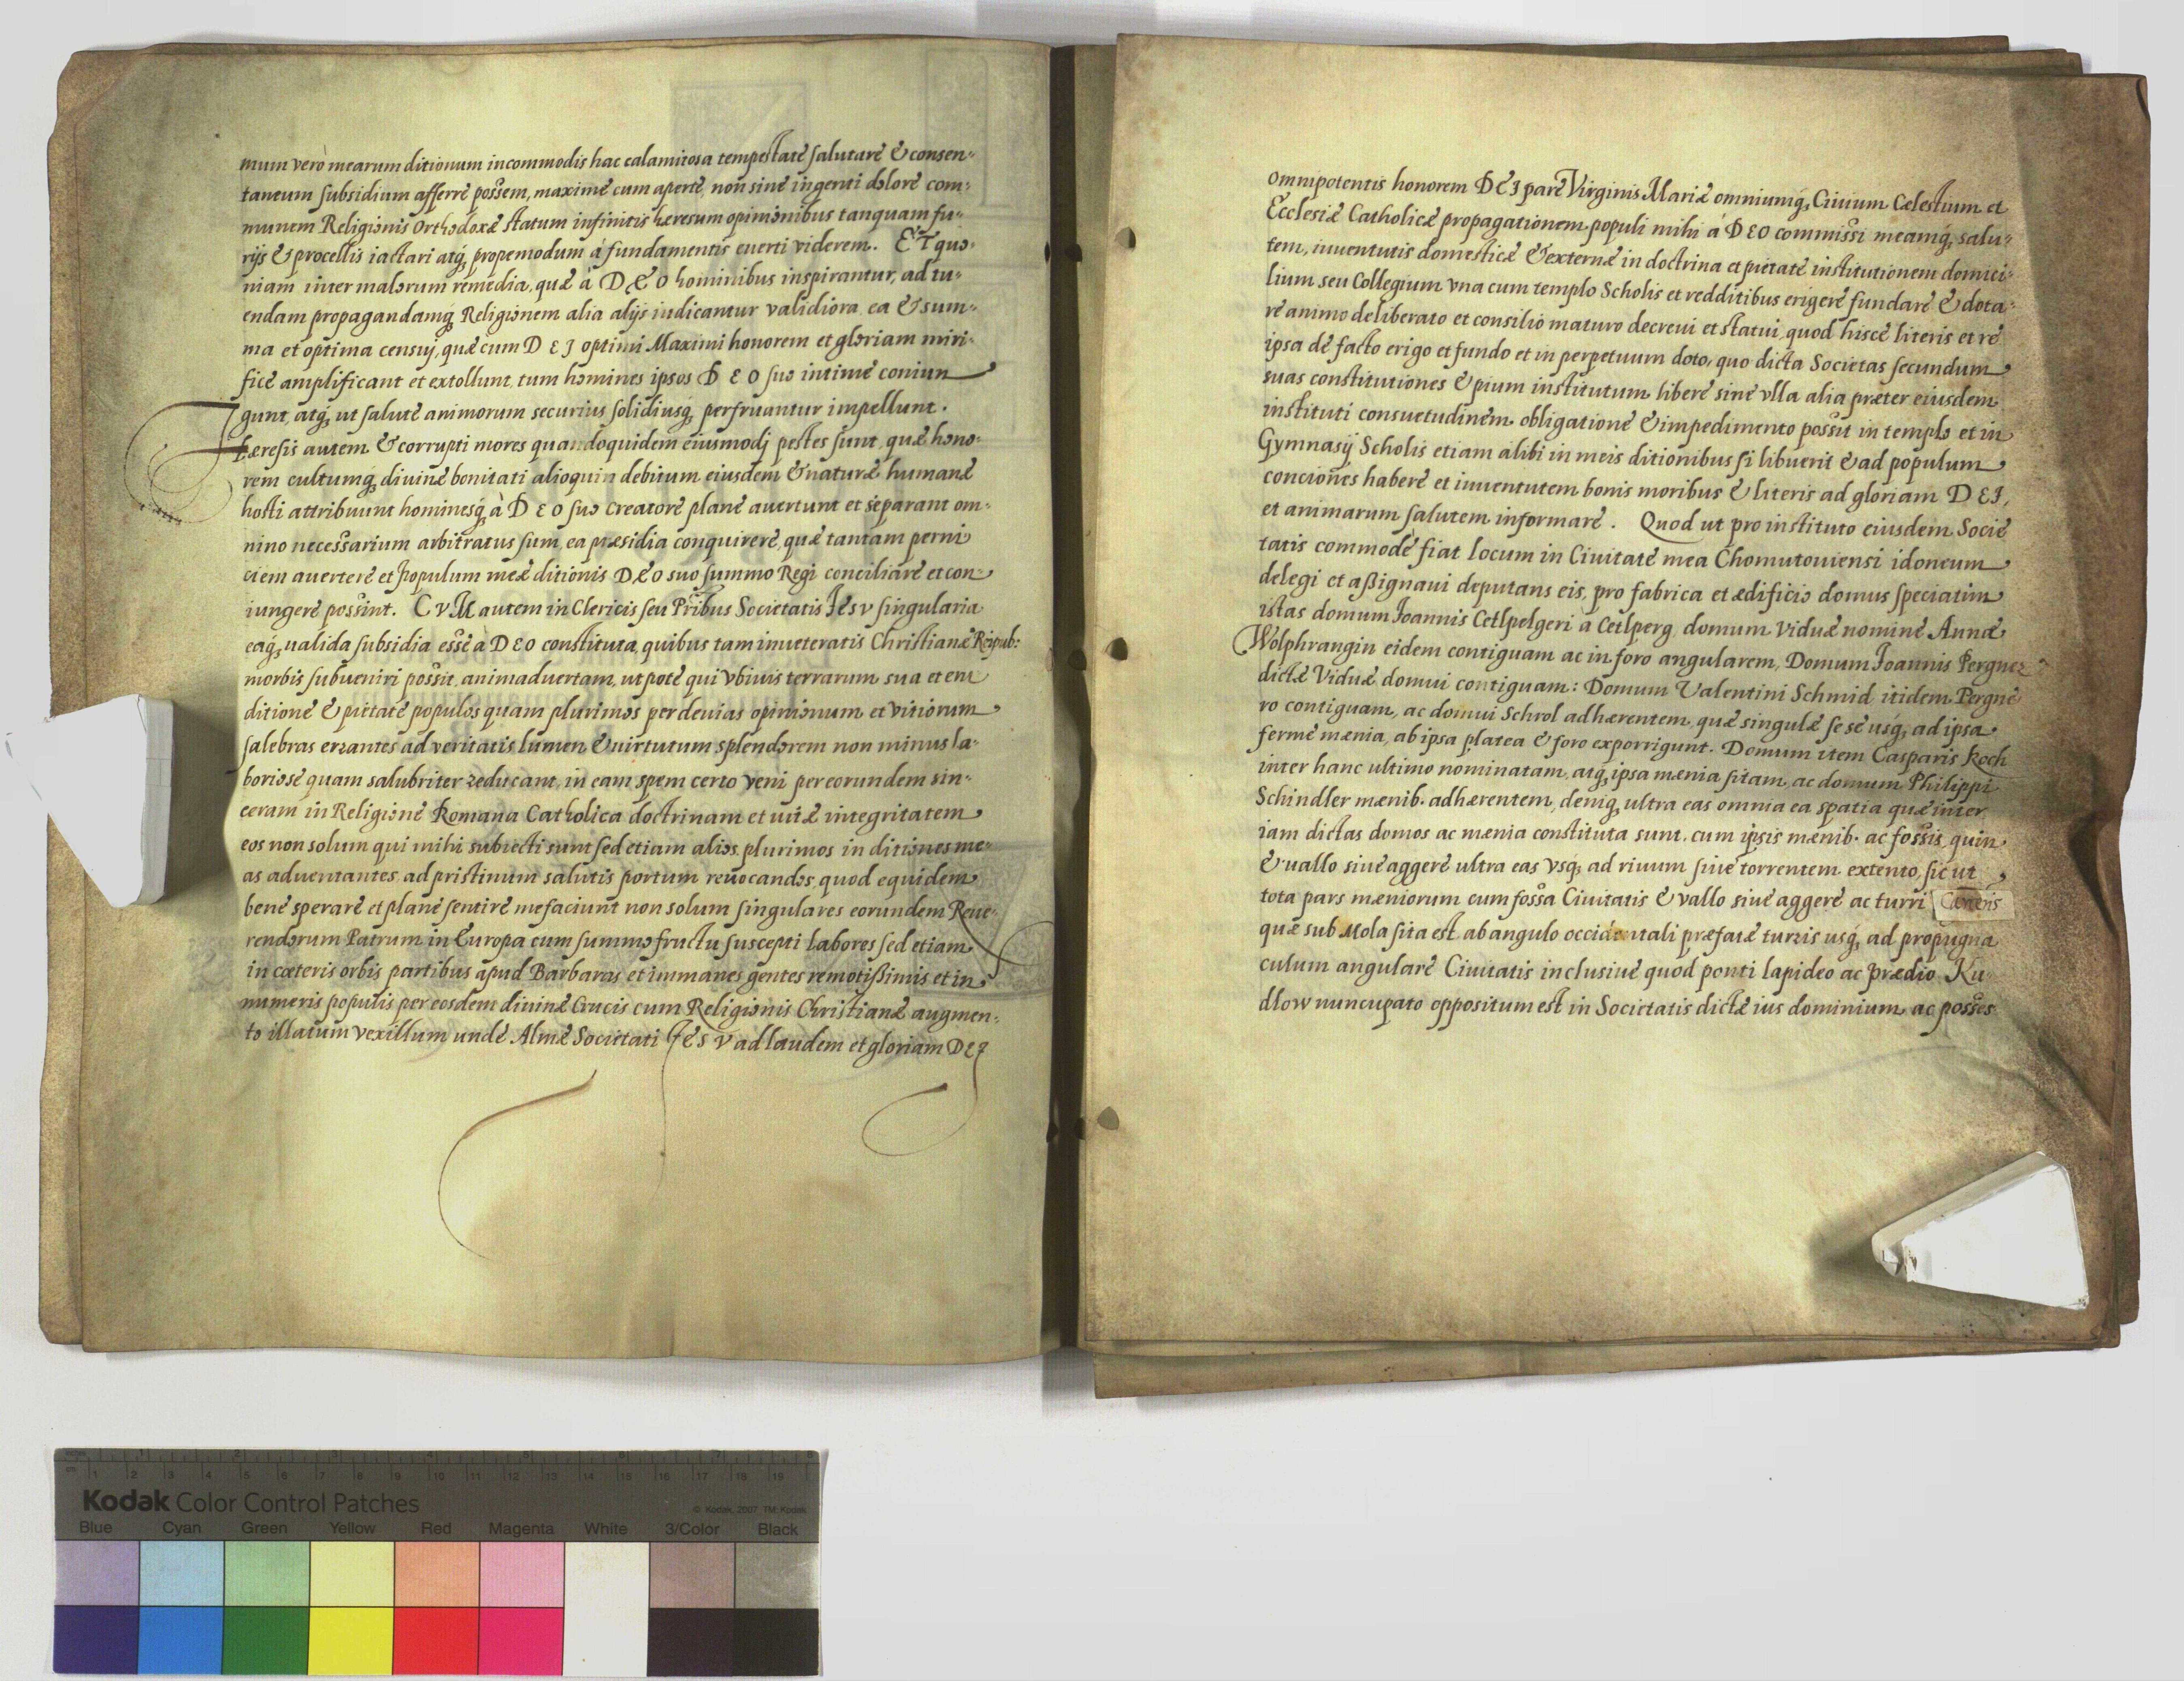 mum verò mearum ditionum incommodis hac calamitosa tempestate salutare & consen-
taneum subsidium afferre possem, maxime cum aperte, non sine ingenti dolore com-
munem Religionis Orthodoxæ statum infinitis hæresum opinionibus tanquam fu-
rijs & procellis iactari atq́, propemodum à fundamentis euerti viderem. ET quo-
niam inter malorum remedia, quæ à DEO hominibus inspirantur, ad tu-
endam propagandamq́ Religionem alia alijs iudicantur validiora, ea & sum-
ma et optima censuj, quæ cum DEJ optimi Maximi honorem et gloriam miri-
fice amplificant et extollunt, tum homines ipsos DEO suo intime coniun
gunt, atq́, ut salute animorum securius solidiusq́, perfruantur impellunt.
Hæresis autem & corrupti mores quandoquidem eiusmodj pestes sunt, quæ hono-
rem cultumq́, diuinæ bonitati alioquin debitum eiusdem & naturæ humanæ
hosti attribuunt hominesq́, à DEO suo Creatore plane auertunt et separant om-
nino necessarium arbitratus sum, ea præsidia conquirere, quæ tantam perni
ciem auertere et populum meæ ditionis DEO suo summo Regi conciliare et con
iungere possint. CVM autem in Clericis seu Pribus Societatis Jesv singularia
eaq́, ualida subsidia esse à DEO constituta, quibus tam inueteratis Christianæ Reipub:
morbis subueniri possit, animaduertam, ut pote qui vbiuis terrarum sua et eru
ditione & pietate populos quam plurimos per deuias opinionum et vitiorum
salebras errantes ad veritatis lumen & uirtutum splendorem non minus la-
boriose quam salubriter reducant, in eam spem certo veni per eorundem sin-
ceram in Religione Romana Catholica doctrinam et uitæ integritatem
eos non solum qui mihi subiecti sunt sed etiam alios plurimos in ditiones me-
as aduentantes, ad pristinum salutis portum reuocandos, quod equidem
bene sperare et plane sentire me faciunt non solum singulares eorundem Reue-
rendorum Patrum in Europa cum summo fructu suscepti labores sed etiam
in cæteris orbis partibus apud Barbaras et immanes gentes remotißimis et in
numeris populis per eosdem diuinæ Crucis cum Religionis Christianæ augmen-
to illatum vexillum unde Almæ Societati JESV ad laudem et gloriam DEJ
omnipotentis honorem DEJparæ Virginis Mariæ omniumq́, Ciuium Cælestium et
Ecclesiæ Catholicæ propagationem populi mihi à DEO commissi meamq́, salu-
tem, iuuentutis domesticæ & externæ in doctrina et pietate institutionem domici-
lium seu Collegium vna cum templo Scholis et redditibus erigere fundare & dota-
re animo deliberato et consilio maturo decreui et statui, quod hisce literis et re
ipsa de facto erigo et fundo et in perpetuum doto, quo dicta Societas secundum
suas constitutiones & pium institutum libere sine vlla alia præter eiusdem
instituti consuetudinem obligatione & impedimento possit in templo et in
Gymnasij Scholis etiam alibi in meis ditionibus si libuerit & ad populum
conciones habere et iuuentutem bonis moribus & literis ad gloriam DEJ,
et animarum salutem informare. Quod ut pro instituto eiusdem Socie
tatis commode fiat locum in Ciuitate mea Chomutouiensi idoneum
delegi et aßignaui deputans eis, pro fabrica et ædificio domus speciatim
istas domum Joannis Cetlpelgeri à Cetlperg, domum Viduæ nomine Annæ
Wolphrangin eidem contiguam ac in foro angularem, Domum Joannis Pergner
dictæ Viduæ domui contiguam: Domum Valentini Schmid itidem Pergne
ro contiguam, ac domui Schrol adhærentem, quæ singulæ sese usq́, ad ipsa
ferme mænia, ab ipsa platea & foro exporrigunt. Domum item Casparis Koch
inter hanc ultimo nominatam, atq́, ipsa mænia sitam, ac domum Philippi
Schindler mænib. adhærentem, deniq́, ultra eas omnia ea spatia quæ inter
iam dictas domos ac mænia constituta sunt, cum ipsis mænib. ac fossis, quin
& uallo siue aggere ultra eas vsq́, ad riuum siue torrentem extento, sic ut
tota pars mæniorum cum fossa Ciuitatis & vallo siue aggere ac turri
quæ sub Mola sita est ab angulo occidentali præfatæ turris usq́, ad propugna
culum angulare Ciuitatis inclusiue quod ponti lapideo ac prædio Ku
dlow nuncupato oppositum est in Societatis dictæ ius dominium ac posses
Kodak Color Control Patches
© Kodak, 2007 TM: Kodak
Blue Cyan Green Yellow Red Magenta White 3/Color Black